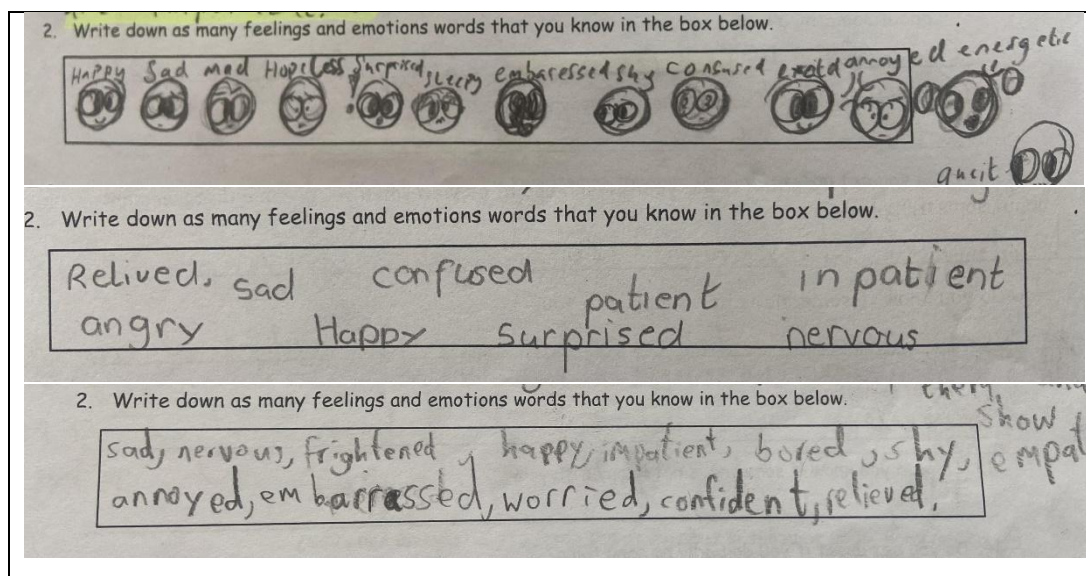 2. Write down as many feelings and emotions words that you know in the box below.
HAPPY Sad mad Hopeless Surprised, sleepy embaressed shy Consused annoyed energetic
2. Write down as many feelings and emotions words that you know in the box below.
Relived, sad confused patient inpatient
angry Happy Surprised nervous
2. Write down as many feelings and emotions words that you know in the box below.
Show
sad, nervous, frightened, happy, impatient, bored, shy, empat
annoyed, embarrassed, worried, confident, relieved,